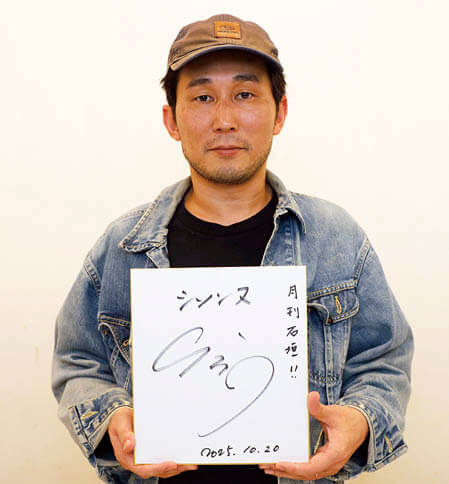 月刊石垣!!
シソンヌ
2025.10.20